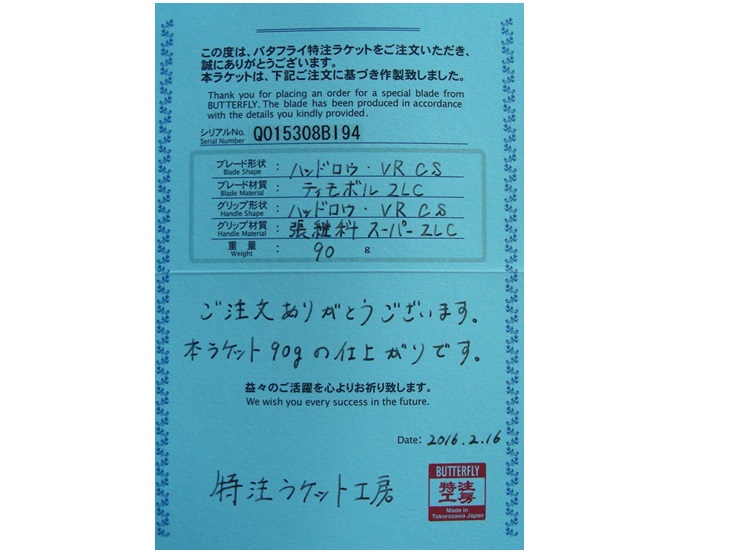 この度は、バタフライ特注ラケットをご注文いただき、
誠にありがとうございます。
本ラケットは、下記ご注文に基づき作製致しました。
Thank you for placing an order for a special blade from
BUTTERFLY. The blade has been produced in accordance
with the details you kindly provided.
シリアルNo. Q015308B194
Serial Number
ブレード形状 : ハッドロウ・VR CS
Blade Shape
ブレード材質 : ティモボル ZLC
Blade Material
グリップ形状 : ハッドロウ・VR CS
Handle Shape
グリップ材質 : 張継科 スーパーZLC
Handle Material
重量 : 90 g
Weight
ご注文ありがとうございます。
本ラケット90gの仕上がりです。
益々のご活躍を心よりお祈り致します。
We wish you every success in the future.
Date: 2016.2.16
特注ラケット工房
BUTTERFLY
特注
工房
Made in
Tokorozawa Japan